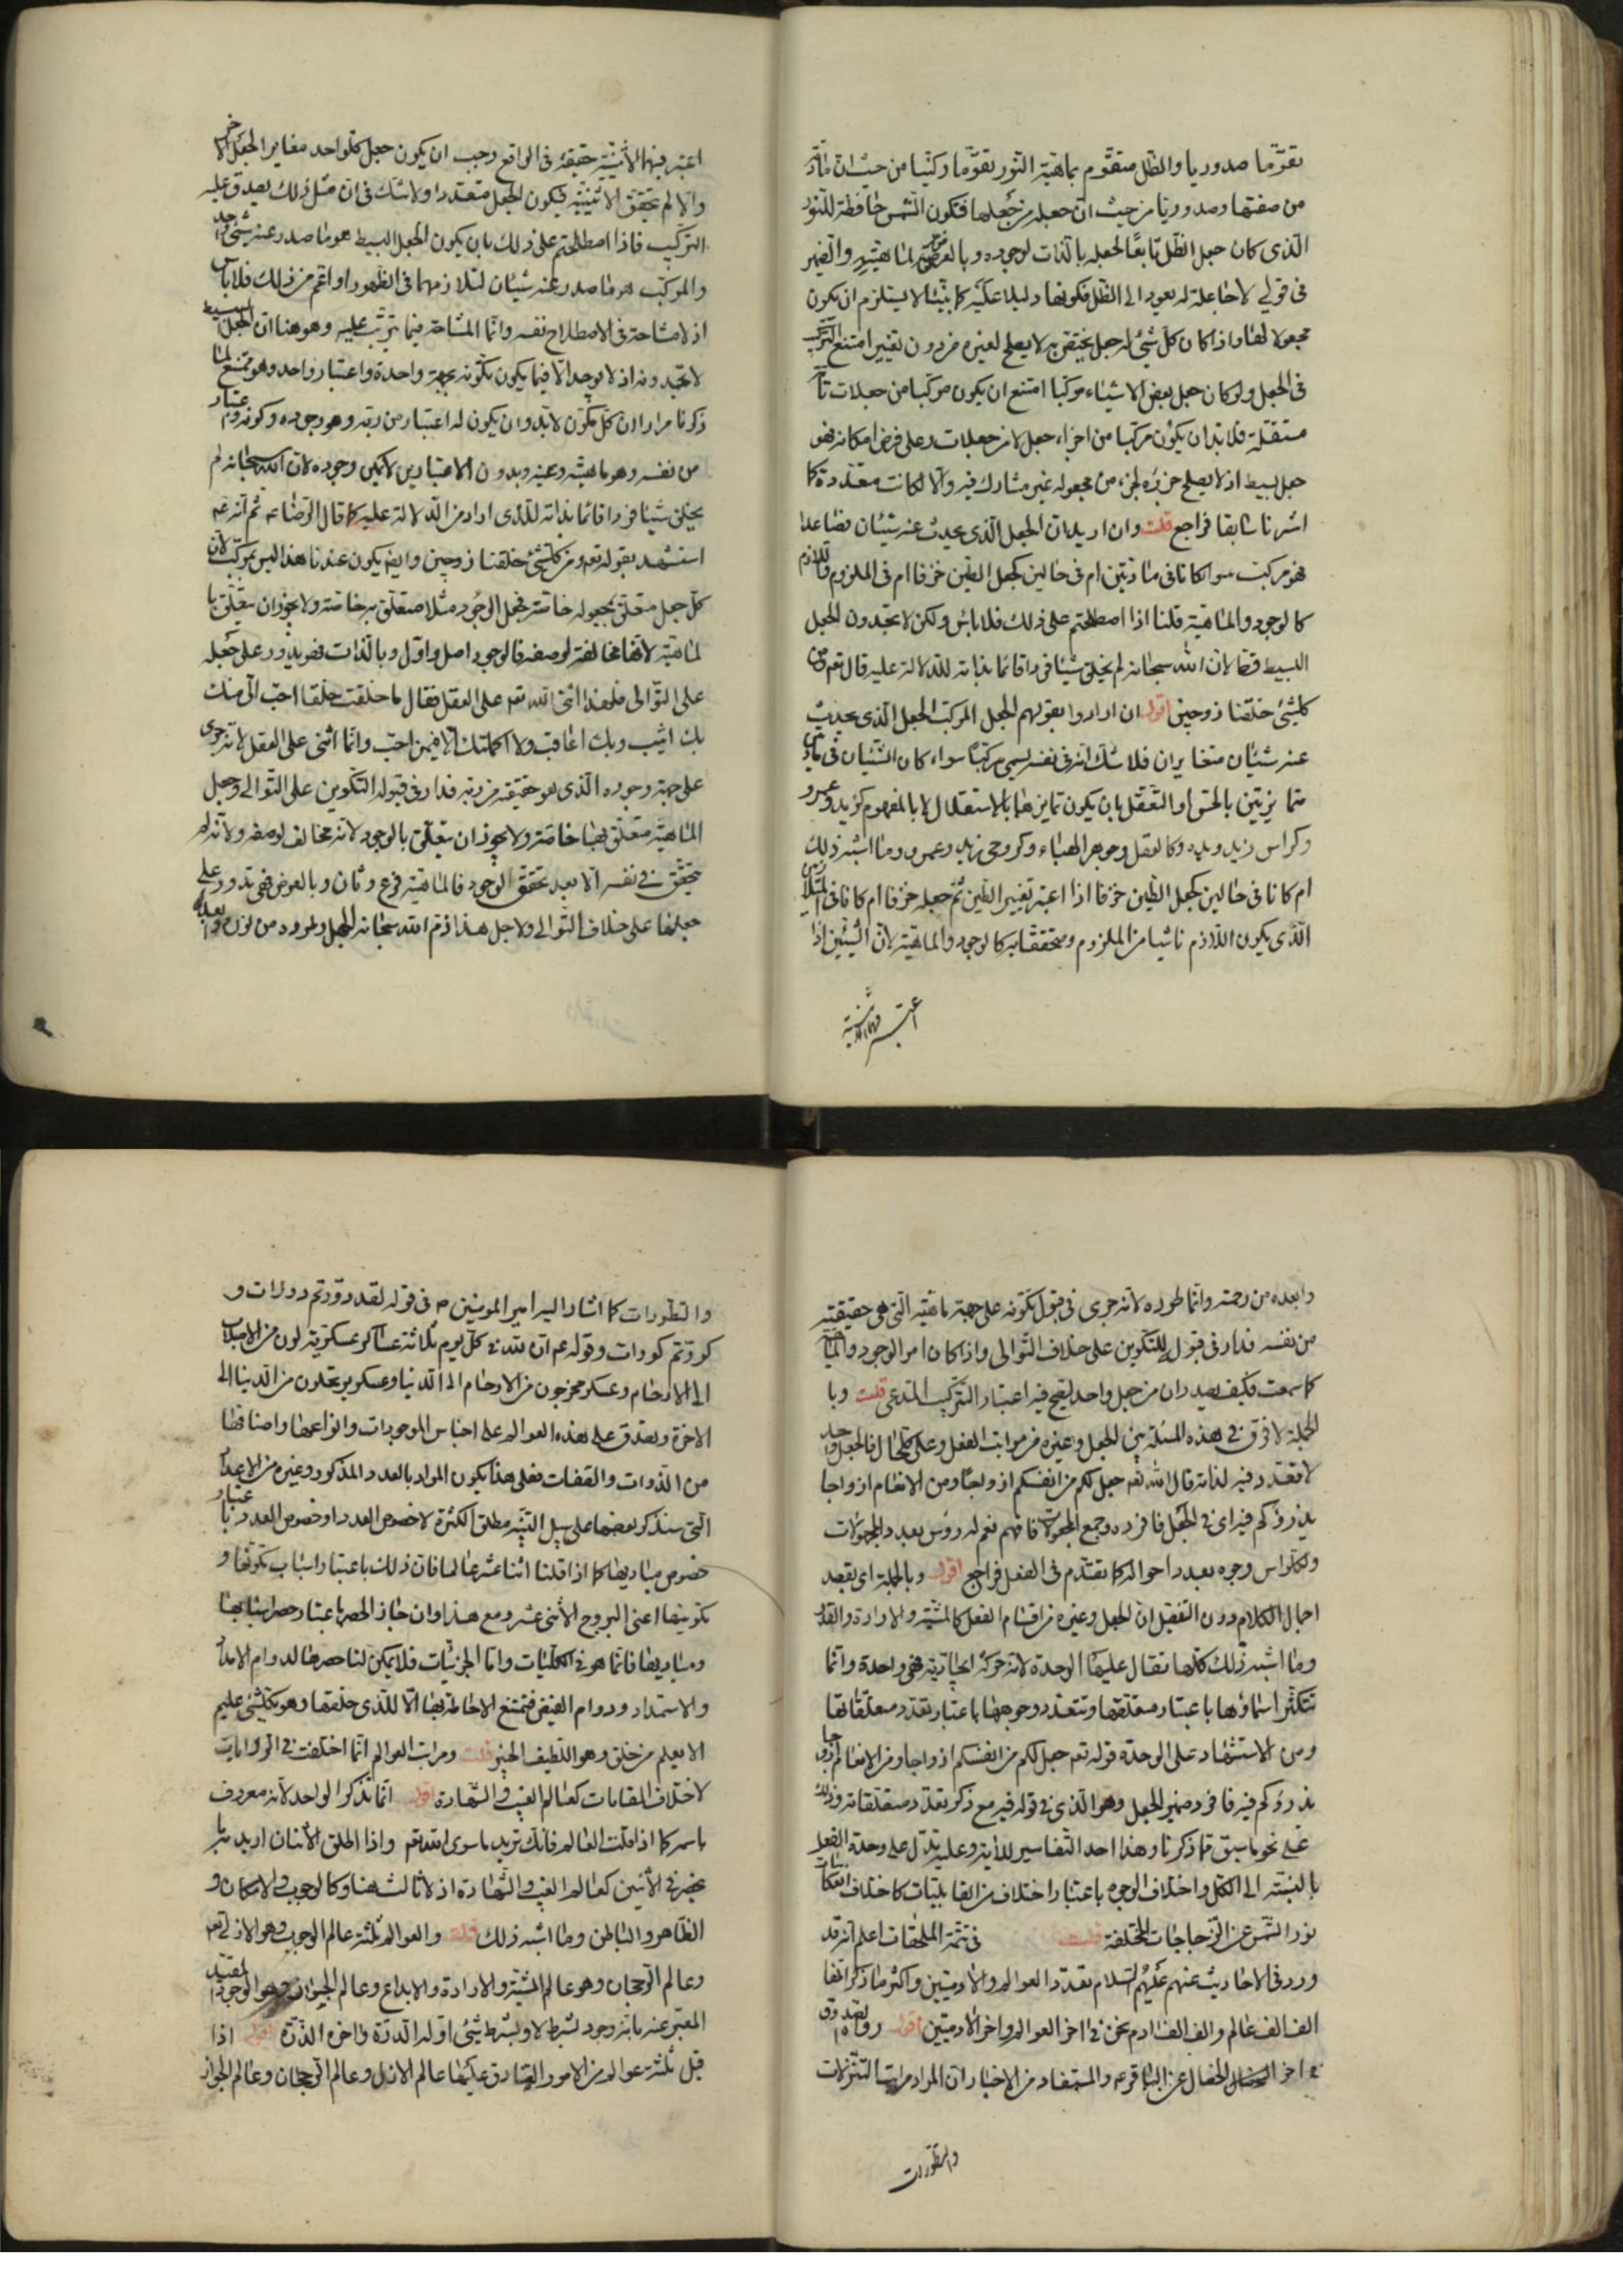 تقوّما صدوريا والظل متقوّم بماهيّة النور تقوّما ركنيّا من حيث ان مادّته
من صفتها وصدوريّا من حيث ان جعله من جعلها فتكون الشمس حافظة للنور
الّذى كان جعل الظل تابعا لجعله بالذات لوجوده وبالعرض لماهيّته والضمير
فى قولي لا جاعلة له يعود الى الظل فكونها دليلا عليه كما بيّنّا لا يستلزم ان يكون
مجعولا لها واذا كان كل شئ له جعل يختصّ به لا يصلح لغيره من دون تغيير امتنع التركيب
فى الجعل ولو كان جعل بعض الاشياء مركبا امتنع ان يكون مركبا من جعلات تامّة
مستقلة فلا بد ان يكون مركبا من اجزاء جعل لا من جعلات وعلى فرض امكانه فهو
جعل بسيط اذ لا يصلح جزؤه لجزء من مجعوله غير مشارك فيه والا لكانت متعدّدة كما
اشرنا سابقا فراجع قلت وان اريد ان الجعل الّذى يحدث عنه شيئان فصاعدا
فهو مركب سواء كانا فى مادّتين ام فى حالين كجعل الطين خزفا ام فى الملزوم واللازم
كالوجود والماهية قلنا اذا اصطلحتم على ذلك فلا بأس ولكن لا تجدون الجعل
البسيط قط لان الله سبحانه لم يخلق شيئا فردا قائما بذاته للدلالة عليه قال تعالى ومن
كلشئ خلقنا زوجين اقول ان ارادوا بقولهم الجعل المركب الجعل الّذى يحدث
عنه شيئان متغايران فلا شك انه فى نفسه ليس مركبا سواء كان الشيئان فى مادتين
متمايزتين بالحس او التعقل بان يكون تمايزهما بالاستقلال لا بالمفهوم كزيد وعمرو
وكراس زيد ويده وكالعقل وجوهر الهباء وكروحى زيد وعمرو وما اشبه ذلك
ام كانا فى حالين كجعل الطين خزفا اذا اعتبر تغيير الطين ثم جعله خزفا ام كانا فى المتلازمين
الّذى يكون اللازم ناشيا من الملزوم ومتحققا به كالوجود والماهية لان الشيئين اذا
اعتبر فيهما الاثنينيّة
اعتبر فيهما الاثنينيّة حقيقة فى الواقع وجب ان يكون جعل كلواحد مغايرا لجعل الاخر
والا لم تتحقق الاثنينيّة فيكون الجعل متعددا ولا شك فى ان مثل ذلك يصدق عليه
التركيب فاذا اصطلحتم على ذلك بان يكون الجعل البسيط هو ما صدر عنه شئ واحد
والمركب هو ما صدر عنه شيئان لتلازمهما فى الظهور او اعم من ذلك فلا باس
اذ لا مشاحة فى الاصطلاح نفسه وانما المشاحة فيما يترتب عليه وهو هنا ان الجعل البسيط
لا تجدونه اذ لا يوجد الا فيما يكون تكونه بجهة واحدة واعتبار واحد وهو ممتنع لما
ذكرنا مرارا ان كل مكوّن لا بد وان يكون له اعتبار من ربه وهو وجوده وكونه واعتبار
من نفسه وهو ماهيته وعينه وبدون الاعتبارين لا يمكن وجوده لان الله سبحانه لم
يخلق شيئا فردا قائما بذاته للذى اراد من الدلالة عليه كما قال الرضا عه ثم انه عه
استشهد بقوله تعه ومن كلشئ خلقنا زوجين وايضا يكون عندنا هذا ليس بمركب لان
كل جعل متعلق بمجعوله خاصة فجعل الوجود مثلا متعلق به خاصة ولا يجوز ان يتعلق با
لماهية لانها مخالفة لوصفه فالوجود اصل واوّل وبالذات فهو يدور على جعله
على التوالى فلهذا اثنى الله تعه على العقل فقال ما خلقت خلقا احبّ الىّ منك
بك اثيب وبك اعاقب ولا اكملتك الا فيمن احب وانما اثنى على العقل لانه جرى
على جهة وجوده الّذى هو حقيقته من ربه فدار فى قبوله التكوين على التوالي وجعل
الماهية متعلق بها خاصة ولا يجوز ان يتعلق بالوجود لانه مخالف لوصفه ولانه لم
يتحقق فى نفسه الا بعد تحقق الوجود فالماهية فرع وثان وبالعرض فهى تدور على
جعلها على خلاف التوالي ولاجل هذا ذم الله سبحانه الجهل وطرده من نوره وابعده
وابعده من رحمته وانما طرده لانه جرى فى قبول تكونه على جهة ماهيته التى هى حقيقته
من نفسه فدار فى قبوله للتكوين على خلاف التوالى واذا كان امر الوجود والماهية
كما سمعت فكيف يصدران من جعل واحد ليصح فيه اعتبار التركيب المدعى قلت وبا
لجملة لا فرق فى هذه المسئلة بين الجعل وغيره من مراتب الفعل وعلى كلحال فالجعل واحد
لا تعدد فيه لذاته قال الله تعه جعل لكم من انفسكم ازواجا ومن الانعام ازواجا
يذرؤكم فيه اى فى الجعل فافرده وجمع المجعولات فافهم نعم له رؤس بعدد المجعولات
ولكل راس وجوه بعدد احواله كما تقدم فى الفعل فراجع اقول وبالجملة اى بقصد
اجمال الكلام دون التفصيل ان الجعل وغيره من اقسام الفعل كالمشية والارادة والقدر
وما اشبه ذلك كلها تقال عليها الوحدة لانه حركة ايجادية فهى واحدة وانما
تتكثر اسماؤها باعتبار متعلقها وتتعدد وجوهها باعتبار تعدد متعلقاتها
ومن الاستشهاد على الوحدة قوله تعه جعل لكم من انفسكم ازواجا ومن الانعام ازواجا
يذرؤكم فيه فافرد ضمير الجعل وهو الّذى فى قوله فيه مع ذكر تعدد متعلقاته وذلك
على نحو ما سبق مما ذكرنا وهذا احد التفاسير للاية وعليه تدل على وحدة الفعل
بالنسبة الى الكل واختلاف الوجوه باعتبار اختلاف القابليات كاختلاف انعكاسات
نور الشمس عن الزجاجات المختلفة قلت فى تتمة الملحقات اعلم انه قد
ورد فى الاحاديث عنهم عليهم السلام تعدد العوالم والادميين واكثر ما ذكر انها
الف الف عالم والف الف ادم نحن فى اخر العوالم واخر الادميين اقول رواه الصدوق
فى اخر الخصال عن الباقر عه والمستفاد من الاخبار ان المراد مراتب التنزلات
والتطورات
والتطورات كما اشار اليه امير المومنين ٤ فى قوله لقد دوّرتم دورات و
كوّرتم كورات وقوله عه ان لله فى كل يوم ثلاثة عساكر عسكر ينزلون من الاصلاب
الى الارحام وعسكر يخرجون من الارحام الى الدنيا وعسكر يرتحلون من الدنيا الى
الاخرة ويصدق على هذه العوالم على اجناس الموجودات وانواعها واصنافها
من الذوات والصفات فعلى هذا يكون المراد بالعدد المذكور وغيره من الاعداد
التى سنذكر بعضها على سبيل التنبيه مطلق الكثرة لا خصوص العدد او خصوص العدد باعتبار
خصوص مباديها كما اذا قلنا اثنا عشر عالما فان ذلك باعتبار اسباب تكونها و
تكوينها اعنى البروج الاثنى عشر ومع هذا وان جاز الحصر باعتبار حصر اسبابها
ومباديها فانما هو فى الكليات واما الجزئيات فلا يمكن لنا حصرها لدوام الامداد
والاستمداد ودوام الفيض فتمتنع الاحاطة بها الا للذى خلقها وهو بكلشئ عليم
الا يعلم من خلق وهو اللطيف الخبير قلت ومراتب العوالم انما اختلفت فى الروايات
لاختلاف المقامات كعالم الغيب والشهادة اقول انما نذكر الواحد لانه معروف
باسره كما اذا قلت العالم فانك تريد ما سوى الله واذا اطلق الاثنان اريد به ما
ينحصر فى الاثنين كعالم الغيب والشهادة اذ لا ثالث هنا وكالوجوب والامكان و
الظاهر والباطن وما اشبه ذلك قلت والعوالم ثلثة عالم الوجوب وهو الازل تعه
وعالم الرجحان وهو عالم المشية والارادة والابداع وعالم الجواز وهو الوجود المقيد
المعبر عنه بانه وجود بشرط لا وبشرط شئ اوله الدرة واخره الذرة اقول اذا
قيل ثلثة عوالم من الامور الصادق عليها عالم الازل وعالم الرجحان وعالم الجواز